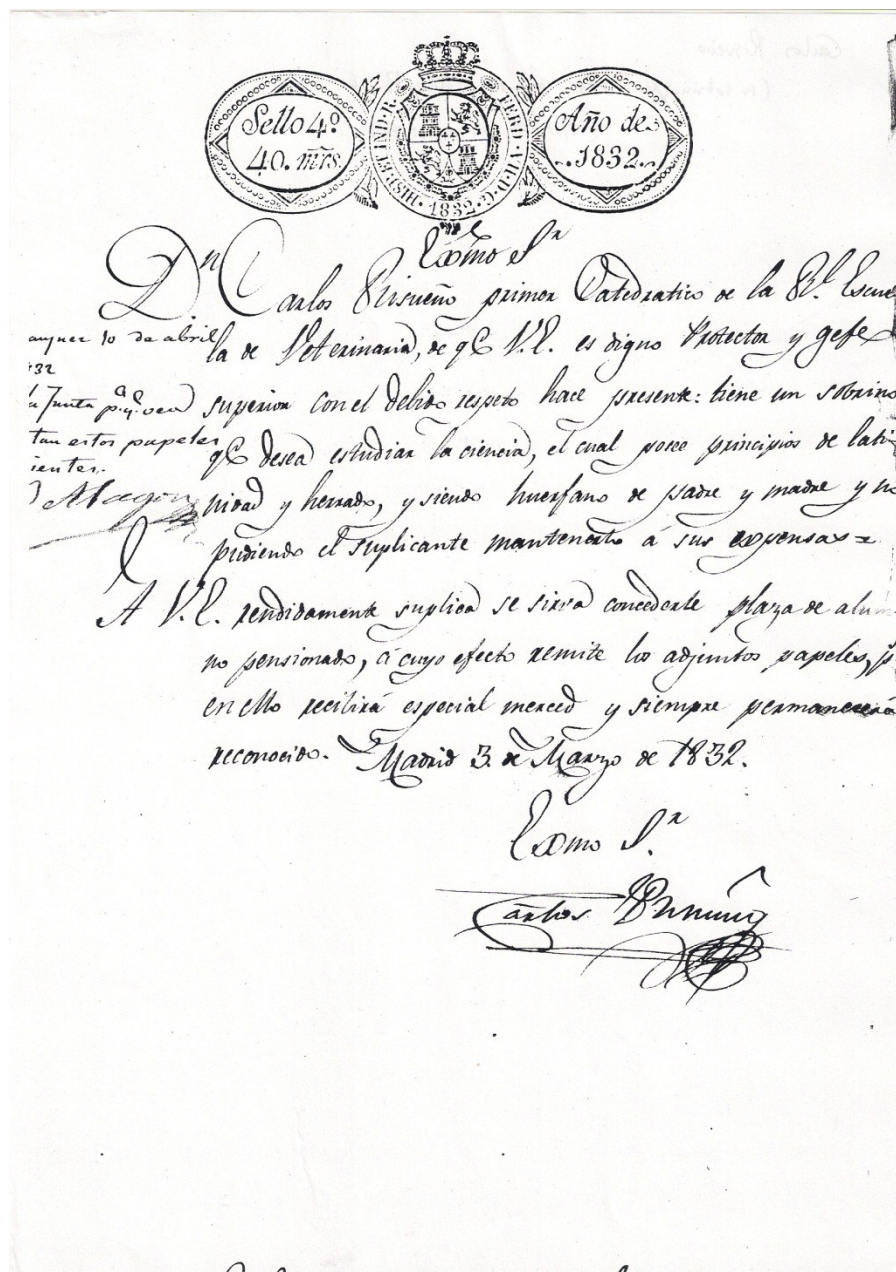 Sello 4º
40. mrs.
HISP. ET IND. R.
FERD. VII. D. G.
1832
Año de
1832.
Exmo Sr
Dn Carlos Risueño primer Catedratico de la Rl. Escue
la de Veterinaria, de qe V.E. es digno Protector y gefe
superior con el debido respeto hace presente: tiene un sobrino
qe desea estudiar la ciencia, el cual posee principios de lati-
nidad y herrado, y siendo huerfano de padre y madre y no
pudiendo el suplicante mantenerlo á sus expensas =
A V.E. rendidamente suplica se sirva concederle plaza de alum
no pensionado, á cuyo efecto remite los adjuntos papeles, p
en ello recibirá especial merced y siempre permanecerá
reconocido. Madrid 3 de Marzo de 1832.
Exmo Sr.
Carlos Risueño
anjuez 10 de abril
32
a Junta pa. qe. vea
tan estos papeles
ientes.
Alagon